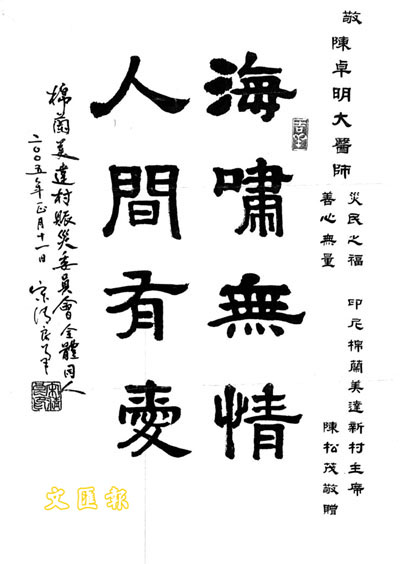 敬陳卓明大醫師
災民之福 印尼棉蘭美達新村主席
善心無量 陳松茂敬贈
海嘯無情
人間有愛
棉蘭美達村賑災委員會全體同人
二〇〇五年正月十一日
文匯報